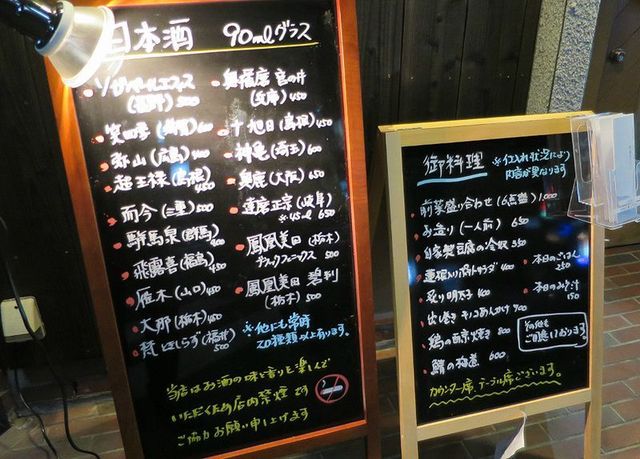 日本酒 90mlグラス
(長野) 500
奥播磨
(兵庫) 450
笑四季 (滋賀) 600
十旭日 (島根) 450
弥山 (広島) 400
神亀 (埼玉) 600
超王禄 (島根) 450
奥鹿 (大阪) 650
而今 (三重) 500
達磨正宗 (岐阜)
※45ml 650
騎馬泉 (群馬) 400
鳳凰美田 (栃木)
ブラックフェニックス 500
飛露喜 (福島) 450
鳳凰美田 碧判
(栃木) 500
雁木 (山口) 450
大那 (栃木) 450
梵 ときしらず (福井) 500
※他にも常時
20種類以上有ります。
当店はお酒の味と香りを楽しんで
いただくため店内禁煙です
ご協力お願い申し上げます
御料理
※仕入れ状況により
内容が異なります
前菜盛り合わせ (6点盛) 1,000
お造り (一人前) 650
自家製豆腐の冷奴 350
蓮根入りポテトサラダ 400
炙り明太子 400
出し巻き きのこあんかけ 700
鶏の西京焼き 800
鯖の 600
本日のごはん
250
本日のみそ汁
150
その他も
ご用意しております。
カウンター席、テーブル席ございます。